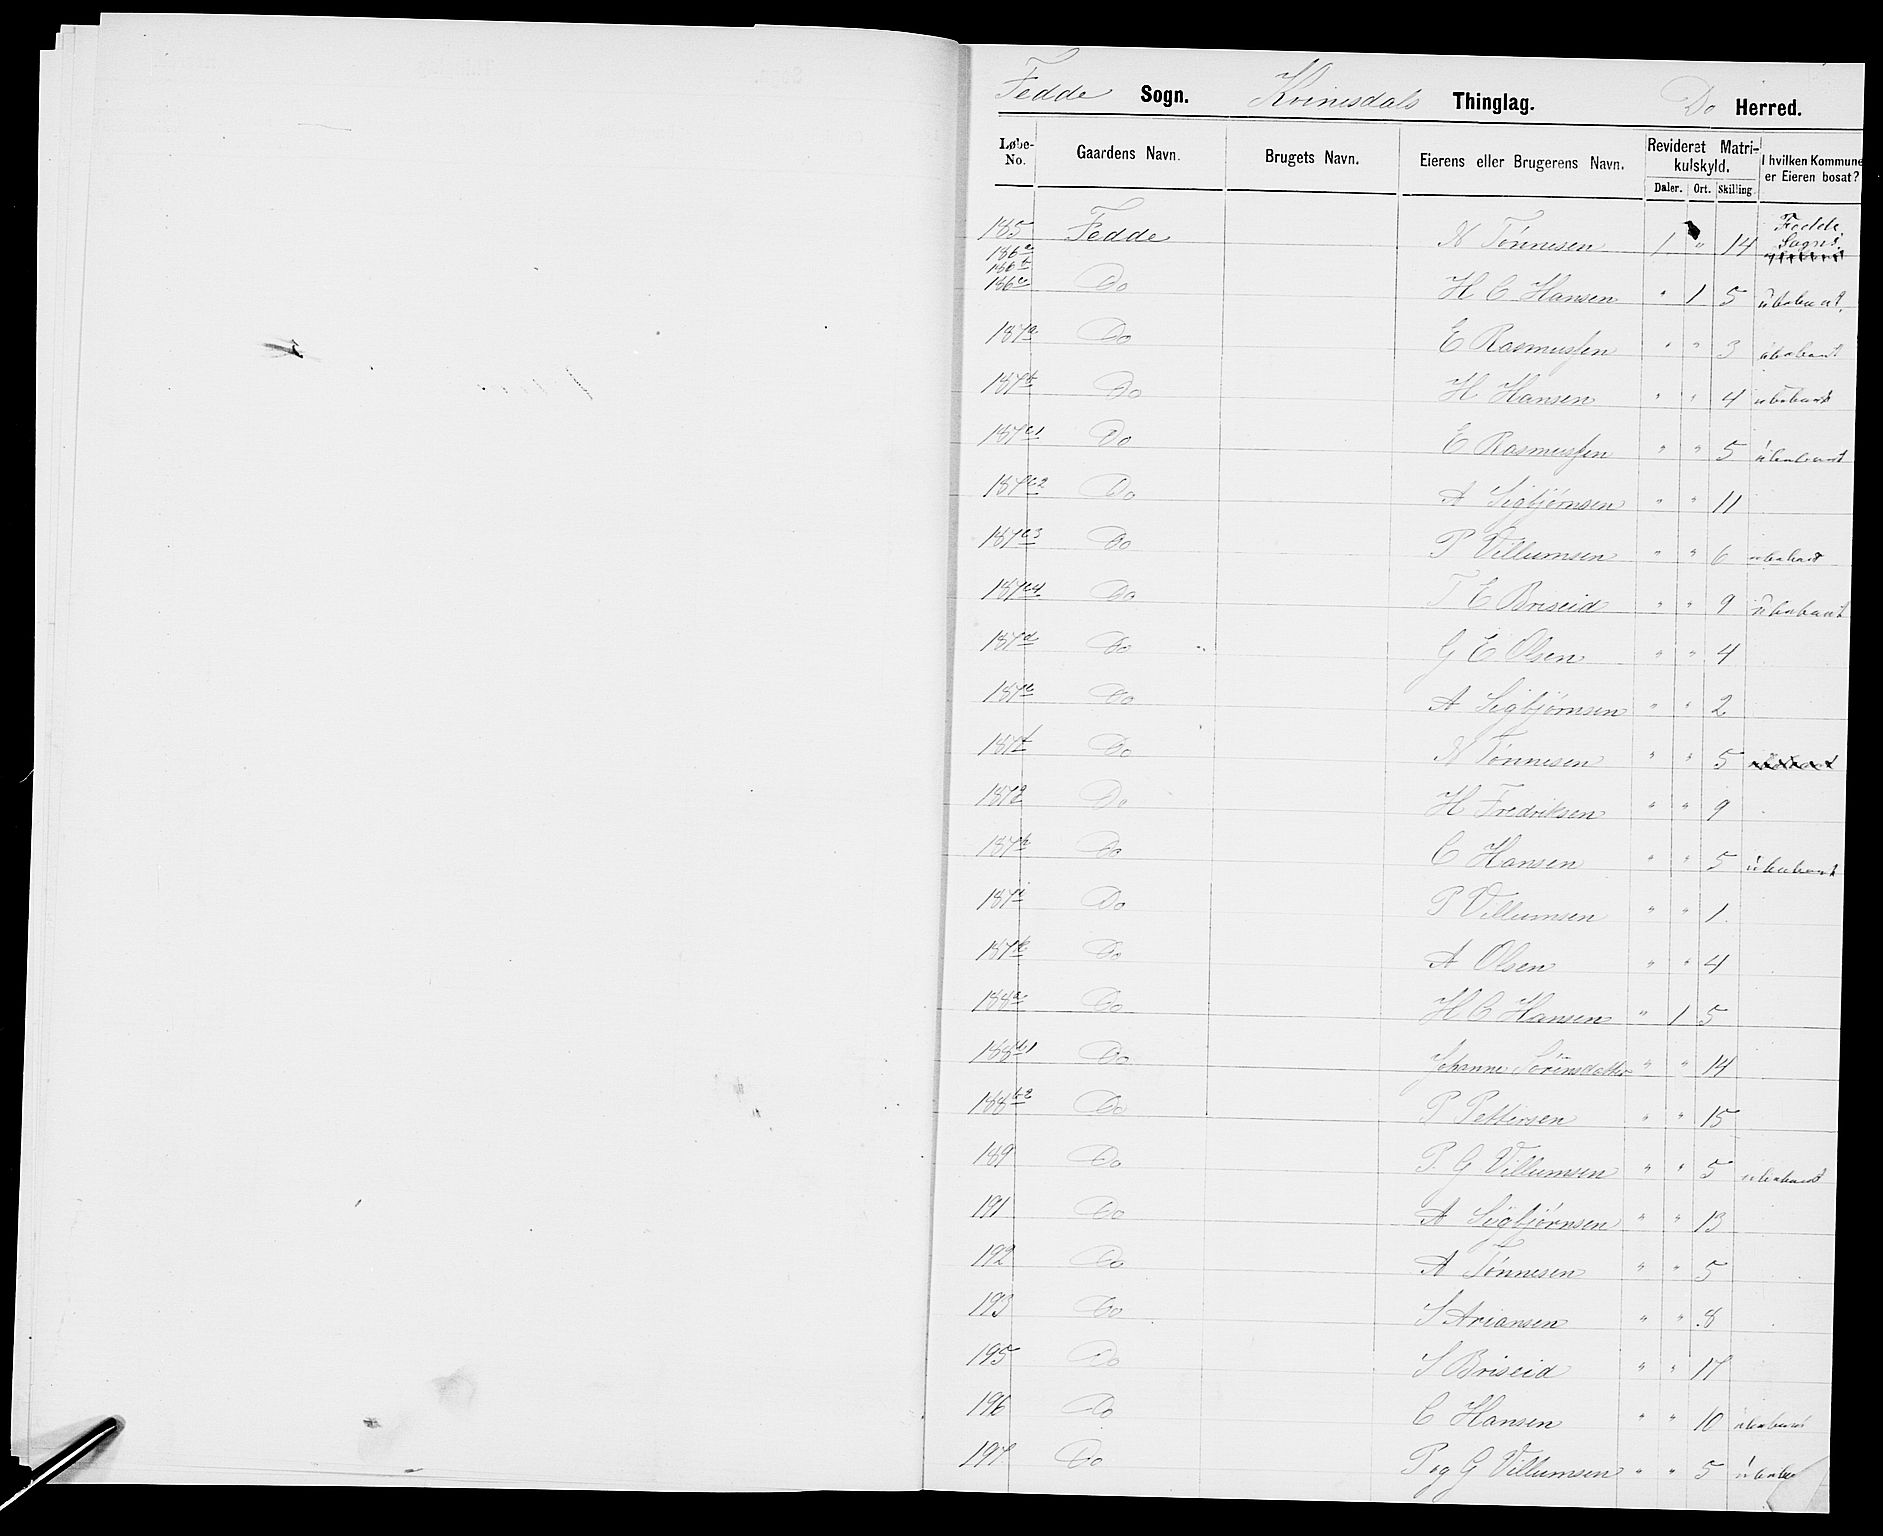 Fedde Sogn. Kvinesdals Thinglag. Do Herred.
Løbe-No. Gaardens Navn. Brugets Navn. Eierens eller Brugerens Navn. Revideret Matrikulskyld. I hvilken Kommune er Eieren bosat?
Daler. Ort. Skilling
185 Fedde N Tønnesen 1 " 14 Fedde Sogns
186a
186b
186c Do H C Hansen " 1 5 ubebuet
187a Do E Rasmussen " " 3 ubebuet
187b Do H Hansen " " 4 ubebuet
187c1 Do E Rasmussen " " 5 ubebuet
187c2 Do A Sigbjørnsen " " 11
187c3 Do P Villumsen " " 6 ubebuet
187c4 Do T E Briseid " " 9 ubebuet
187d Do G E Olsen " " 4
187e Do A Sigbjørnsen " " 2
187f Do N Tønnesen " " 5
187g Do H Fredriksen " " 9
187h Do C Hansen " " 5 ubebuet
187i Do P Villumsen " " 1
187k Do A Olsen " " 4
188a Do H C Hansen " 1 5
188b1 Do Johanne Sørensdatter " " 14
188b2 Do P Pettersen " " 15
189 Do P. G Villumsen " " 5 ubebuet
191 Do A Sigbjørnsen " " 13
192 Do A Tønnesen " " 5
193 Do S Ariansen " " 8
195 Do S Briseid " " 17
196 Do C Hansen " " 10 ubebuet
197 Do P og G Villumsen " " 5